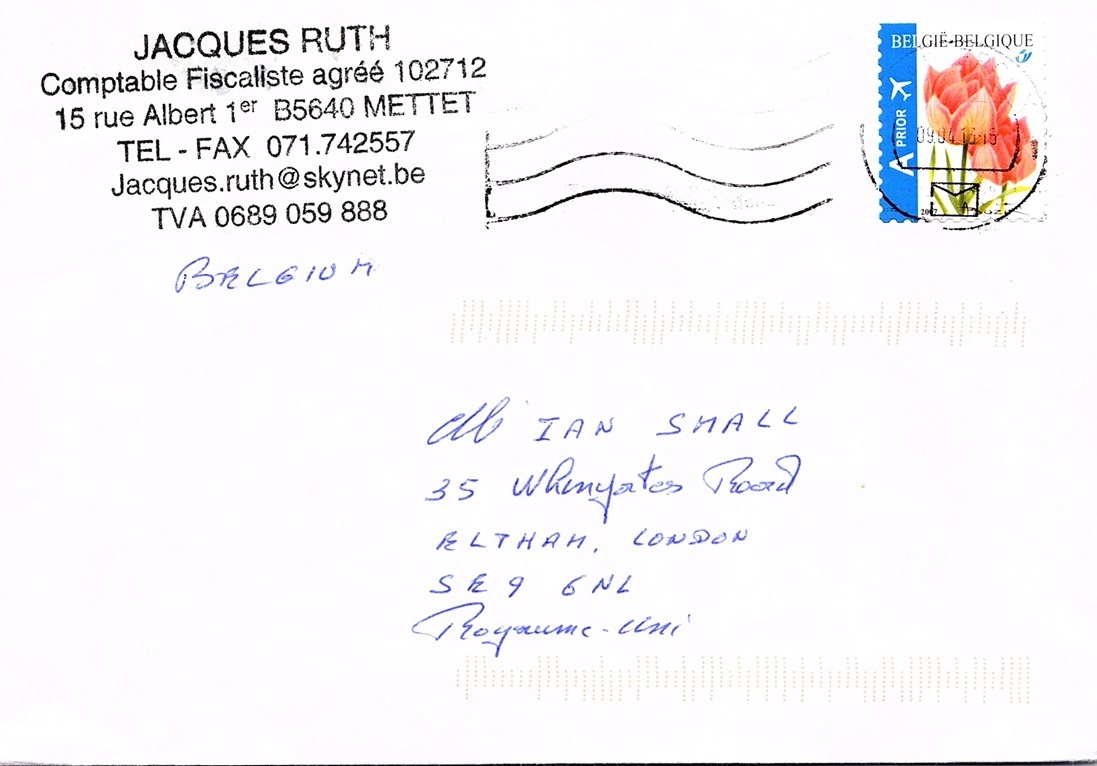 JACQUES RUTH
Comptable Fiscaliste agréé 102712
15 rue Albert 1er B5640 METTET
TEL - FAX 071.742557
Jacques.ruth@skynet.be
TVA 0689 059 888
BELGIUM
BELGIË-BELGIQUE
A PRIOR
2007
IAN SMALL
35 Whinyates Road
ELTHAM, LONDON
SE9 6NL
Royaume-Uni